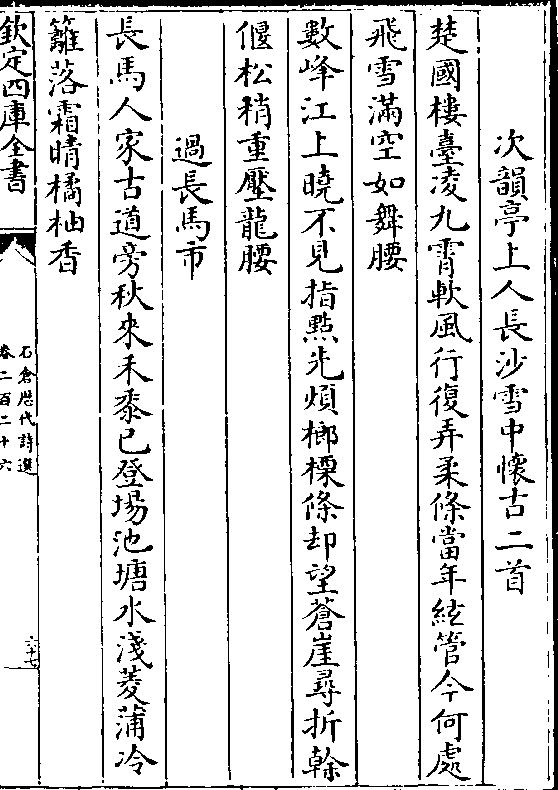 次韻亭上人長沙雪中懷古二首
楚國樓臺凌九霄軟風行復弄柔條當年絃管今何處
飛雪滿空如舞腰
數峰江上曉不見指㸃先煩榔樏條却望蒼崖尋折榦
偃松稍重壓龍腰
過長馬市
長馬人家古道旁秋來禾黍已登場池塘水淺菱蒲冷
籬落霜晴橘柚香
欽定四庫全書
石倉歴代詩選
卷二百二十六